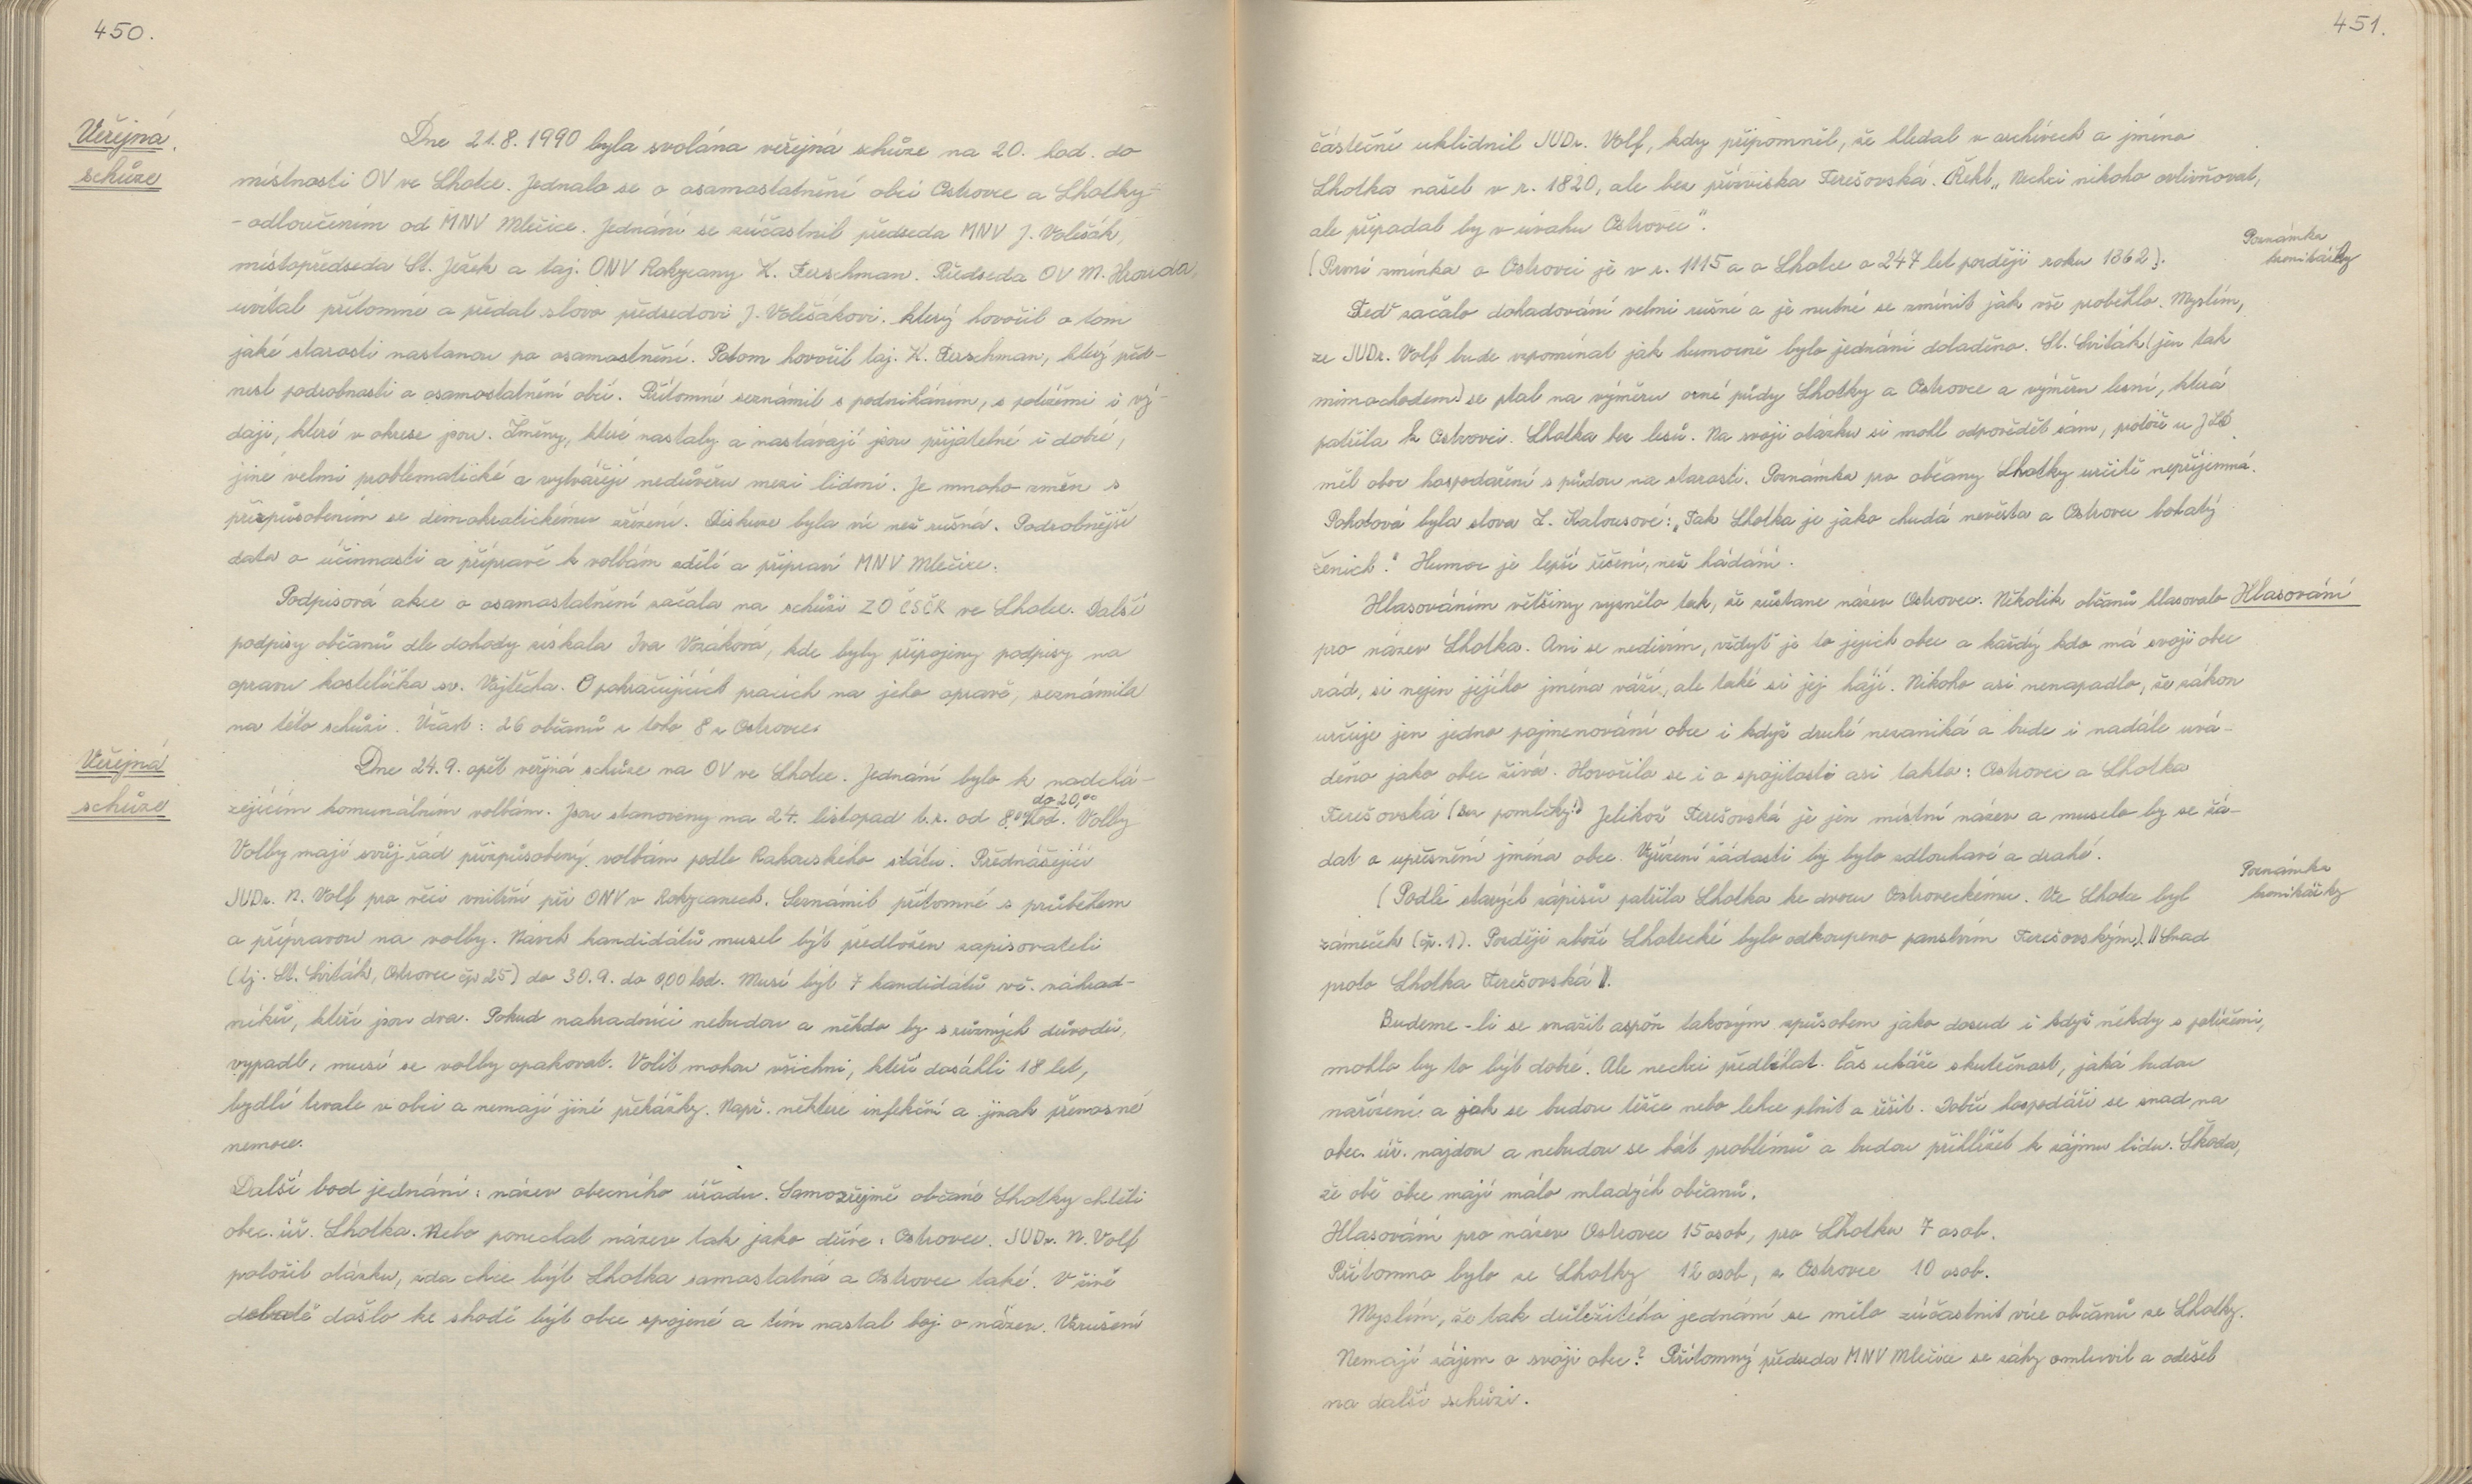 450.
Veřejná
schůze
Dne 21.8.1990 byla svolána veřejná schůze na 20. hod. do
místnosti OV ve Lhotce. Jednalo se o osamostatnění obcí Ostrovce a Lhotky -
- odloučením od MNV Mlečice. Jednání se zúčastnil předseda MNV J. Volešák,
místopředseda St. Ježek a taj. ONV Rokycany K. Ferschman. Předseda OV M. Hrouda,
uvítal přítomné a předal slovo předsedovi J. Volešákovi. který hovořil o tom
jaké starosti nastanou po osamostnění. Potom hovořil taj. K. Ferschman, který před-
nesl podrobnosti o osamostatnění obcí. Přítomné seznámil s podnikáním, s potížemi i vý-
daji, které v okrese jsou. Změny, které nastaly a nastávají jsou přijatelné i dobré,
jiné velmi problematické a vytvářejí nedůvěru mezi lidmi. Je mnoho změn s
přizpůsobením se demokratickému zřízení. Diskuze byla víc než rušná. Podrobnější
data o účinnosti a přípravě k volbám sdělí a připraví MNV Mlečice.
Podpisová akce o osamostatnění začala na schůzi ZO ČSČK ve Lhotce. Další
podpisy občanů dle dohody získala Iva Vozáková, kde byly připojeny podpisy na
opravu kostelíčka sv. Vojtěcha. O pokračujících pracích na jeho opravě, seznámila
na této schůzi. Účast: 26 občanů z toho 8 z Ostrovce.
Veřejná
schůze
Dne 24.9. opět veřjná schůze na OV ve Lhotce. Jednání bylo k nadchá-
zejícím komunálním volbám. Jsou stanoveny na 24. listopad t.r. od 8,00 do 20,00 hod. Volby
Volby mají svůj řád přizpůsobený volbám podle Rakouského státu. Přednášející
JUDr. N. Volf pro věci vnitřní při ONV v Rokycanech. Seznámil přítomné s průběhem
a přípravou na volby. Návrh kandidátů musel být předložen zapisovateli
(tj. St. Sviták, Ostrovec čp 25) do 30.9. do 0,00 hod. Musí být 7 kandidátů vč. náhrad-
níků, kteří jsou dva. Pokud nahradníci nebudou a někdo by s různých důvodů,
vypadl, musí se volby opakovat. Volit mohou všichni, kteří dosáhli 18 let,
bydlí trvale v obci a nemají jiné překážky. Např. některé infekční a jinak přenosné
nemoce.
Další bod jednání: název obecního úřadu. Samozřejmě občané Lhotky chtěli
obec. úř. Lhotka. Nebo ponechat název tak jako dříve: Ostrovec. JUDr. N. Volf
položil otázku, zda chce být Lhotka samostatná a Ostrovec také. V živé
debatě došlo ke shodě být obce spojené a tím nastal boj o název. Vzrušení
451.
částečně uklidnil JUDr. Volf, kdy připomněl, že hledal v archivech a jméno
Lhotka našel v r. 1820, ale bez přízviska Terešovská. Řekl„ Nechci nikoho ovlivňovat,
ale připadal by v úvahu Ostrovec".
Poznámka
kronikářky
(První zmínka o Ostrovci je v r. 1115 a o Lhotce o 247 let později roku 1362).
Teď začalo dohadování velmi rušné a je nutné se zmínit jak vše proběhlo. Myslím,
že JUDr. Volf bude vzpomínat jak humorně bylo jednání doladěno. St. Sviták (jen tak
mimochodem) se ptal na výměru orné půdy Lhotky a Ostrovce a výměru lesní, která
patřila k Ostrovci. Lhotka bez lesů. Na svoji otázku si mohl odpovědět sám, protože u JZD
měl obor hospodaření s půdou na starosti. Poznámka pro občany Lhotky určitě nepříjemná.
Pohotová byla slova L. Kalousové: „Tak Lhotka je jako chudá nevěsta a Ostrovec bohatý
ženich." Humor je lepší řešení, než hádání.
Hlasování
Hlasováním většiny vyznělo tak, že zůstane název Ostrovec. Několik občanů hlasovalo
pro název Lhotka. Ani se nedivím, vždyť je to jejich obec a každý kdo má svoji obec
rád, si nejen jejího jména váží, ale také si jej hájí. Nikoho asi nenapadlo, že zákon
určuje jen jedno pojmenování obce i když druhé nezaniká a bude i nadále uvá-
děno jako obec živá. Hovořilo se i o spojitosti asi takto: Ostrovec a Lhotka
Terešovská (bez pomlčky!) Jelikož Terešovská je jen místní název a muselo by se žá-
dat o upřesnění jména obce. Vyřízení žádosti by bylo zdlouhavé a drahé.
Poznámka
kronikářky
(Podle starých zápisů patřila Lhotka ke dvoru Ostroveckému. Ve Lhotce byl
zámeček (čp. 1). Později zboží Lhotecké bylo odkoupeno panstvím Terešovským). Snad
proto Lhotka Terešovská.
Budeme-li se snažit aspoň takovým způsobem jako dosud i když někdy s potížemi,
mohlo by to být dobré. Ale nechci předbíhat. Čas ukáže skutečnost, jaká budou
nařízení a jak se budou těžce nebo lehce plnit a řešit. Dobří hospodáři se snad na
obec. úř. najdou a nebudou se bát problémů a budou přihlížet k zájmu lidu. Škoda,
že obě obce mají málo mladých občanů.
Hlasování pro název Ostrovec 15 osob, pro Lhotku 7 osob.
Přítomno bylo ze Lhotky 12 osob, z Ostrovce 10 osob.
Myslím, že tak důležitého jednání se mělo zúčastnit více občanů ze Lhotky.
Nemají zájem o svoji obec? Přítomný předseda MNV Mlečice se záhy omluvil a odešel
na další schůzi.